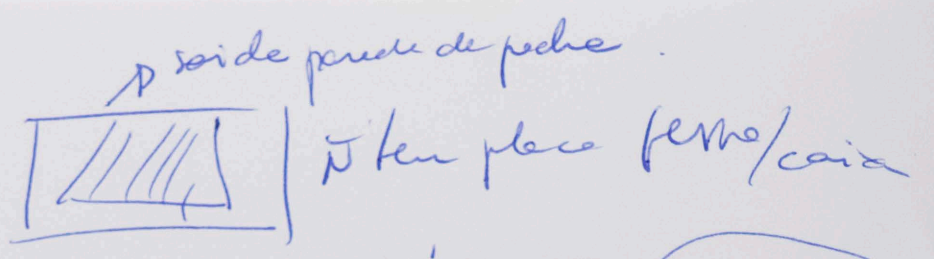 sai de parede de pedra.
Ñ tem placa fecha/caixa